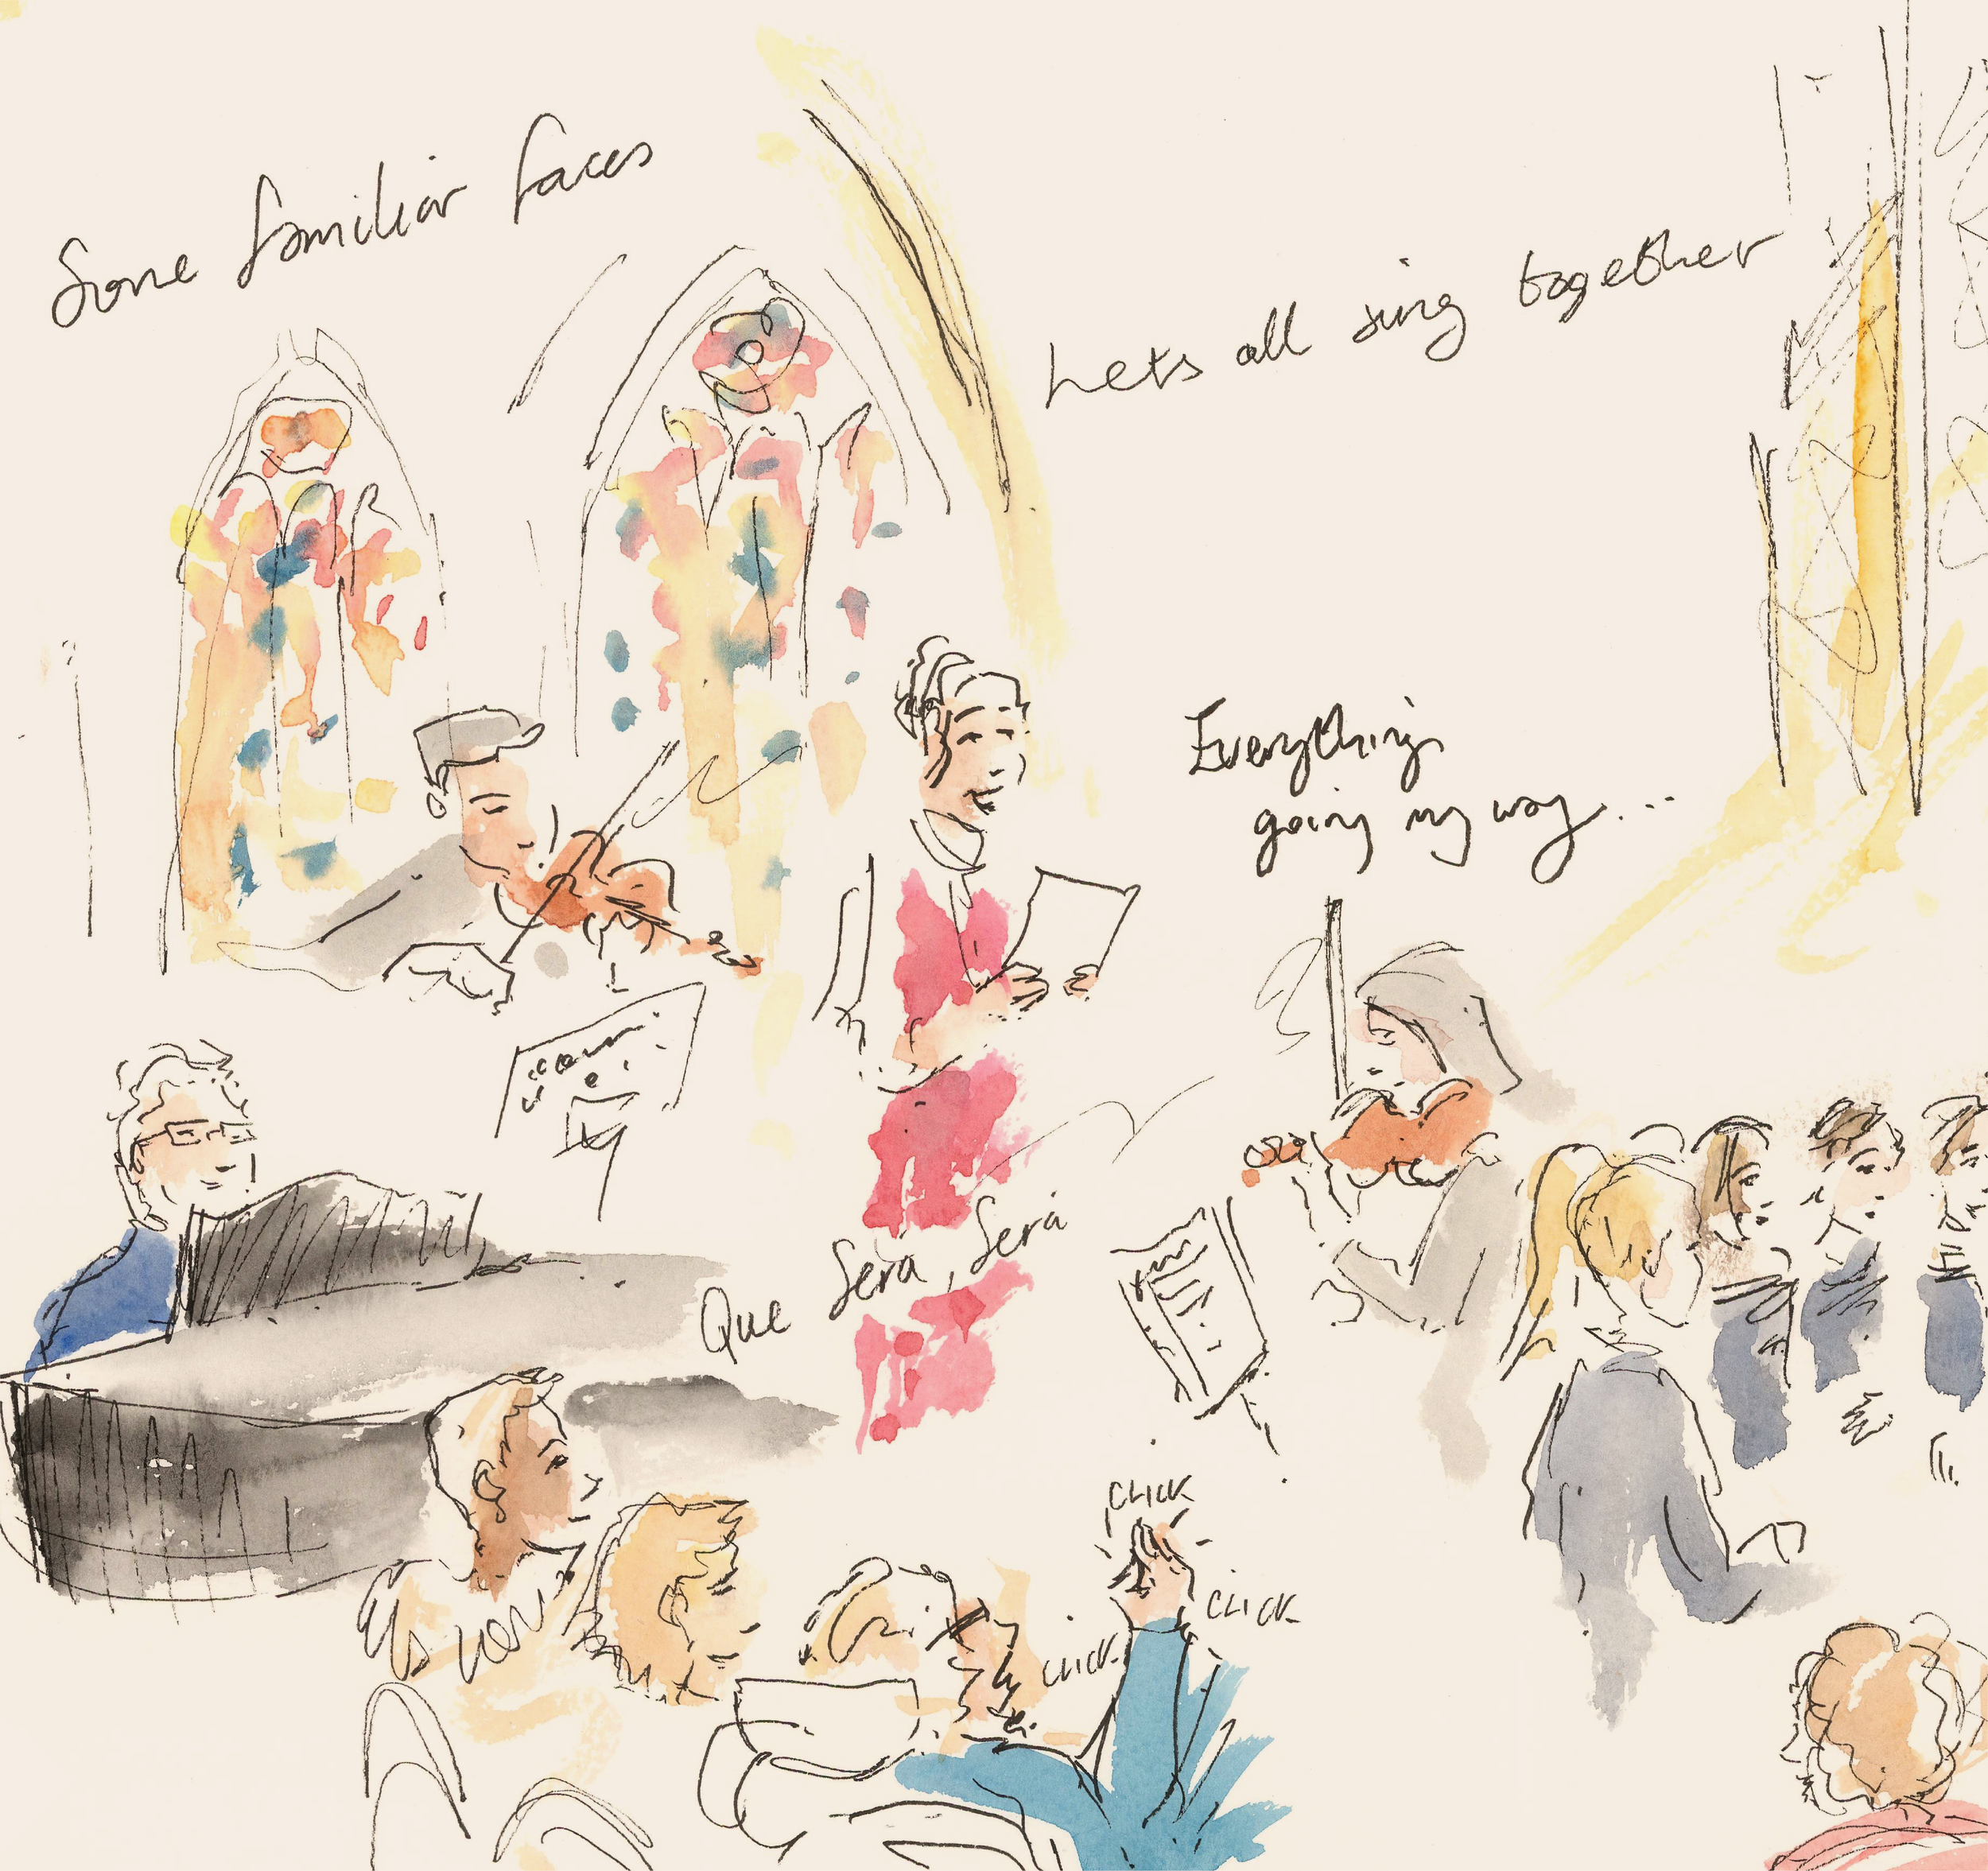 Some familiar faces
Lets all sing together
Everything
going my way...
Que Será, Será
CLICK
CLICK
CLICK